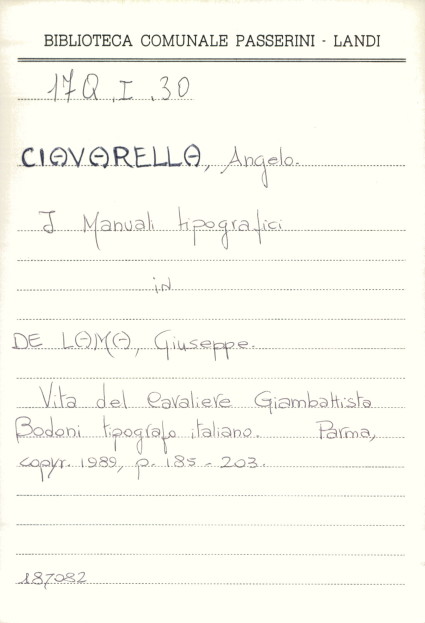 BIBLIOTECA COMUNALE PASSERINI - LANDI
17Q.I.30
CIAVARELLA, Angelo.
I Manuali tipografici
in
DE LAMA, Giuseppe.
Vita del Cavaliere Giambattista
Bodoni tipografo italiano. Parma,
copyr. 1989, p. 185-203.
187082